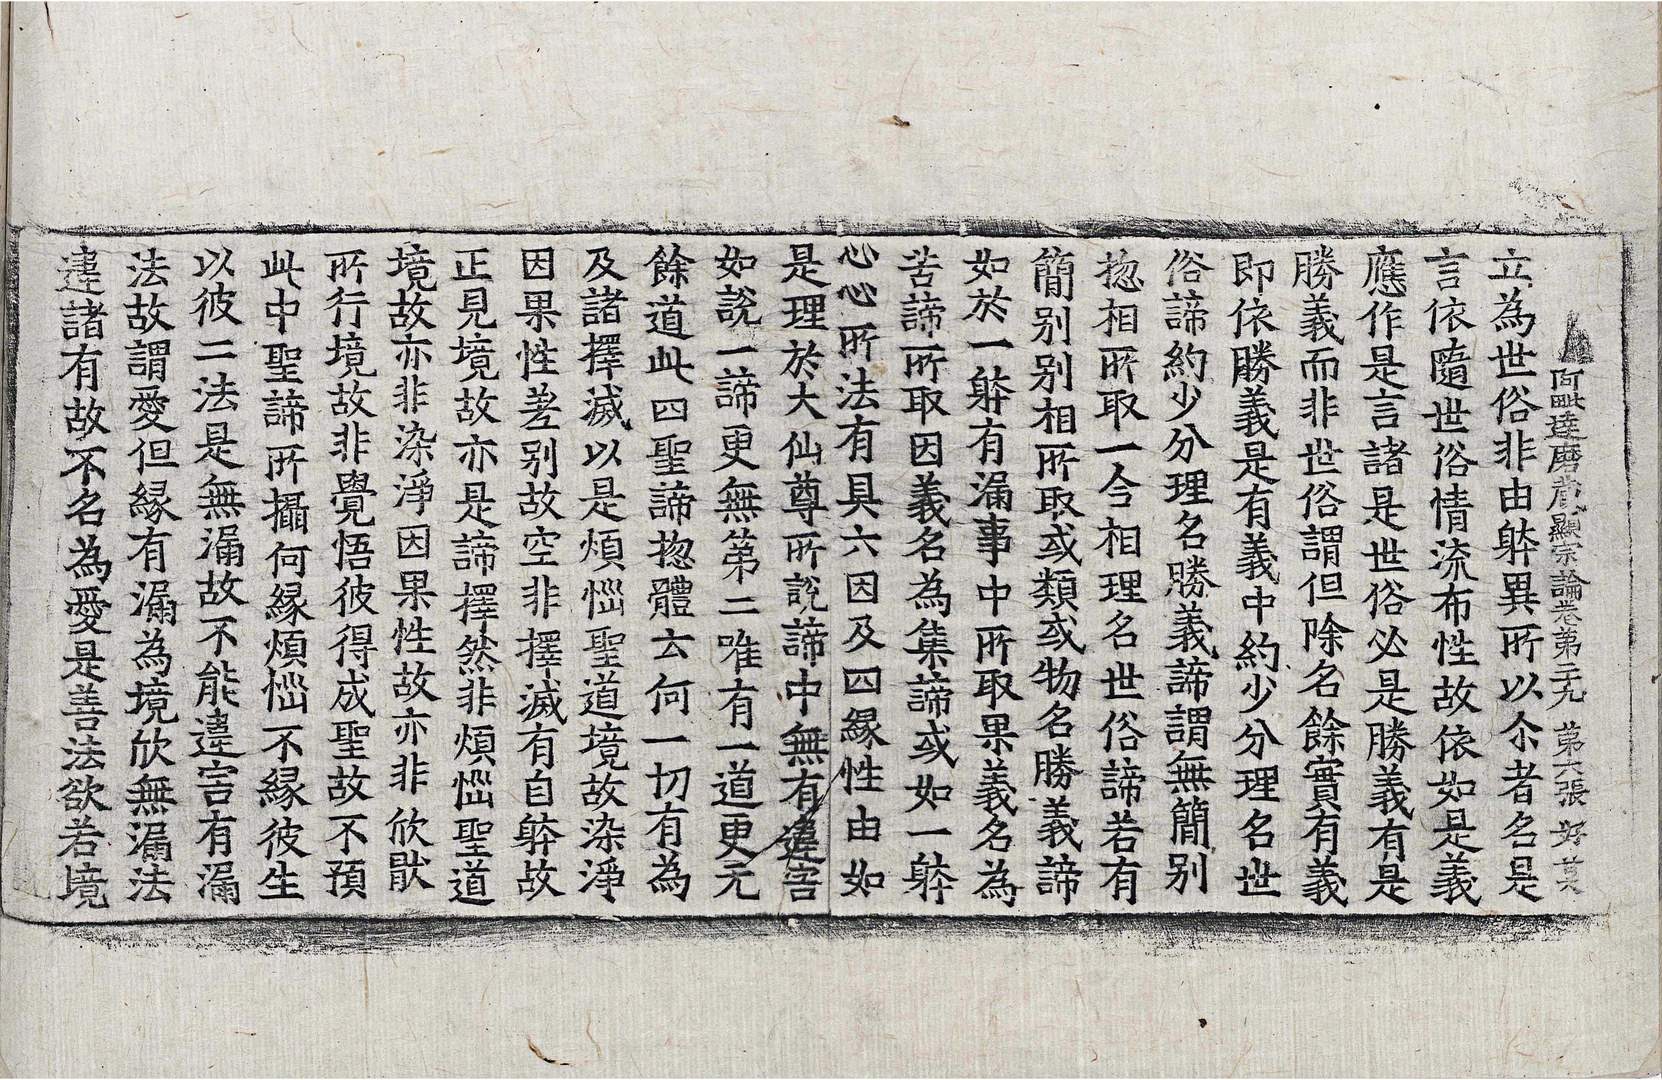 阿毗達磨藏顯宗論卷第二十九 第六張 好
立為世俗非由躰異所以尒者名是
言依隨世俗情流布性故依如是義
應作是言諸是世俗必是勝義有是
勝義而非世俗謂但除名餘實有義
即依勝義是有義中約少分理名世
俗諦約少分理名勝義諦謂無簡別
揔相所取一合相理名世俗諦若有
簡別別相所取或類或物名勝義諦
如於一躰有漏事中所取果義名為
苦諦所取因義名為集諦或如一躰
心心所法有具六因及四緣性由如
是理於大仙尊所說諦中無有違害
如說一諦更無第二唯有一道更无
餘道此四聖諦揔體云何一切有為
及諸擇滅以是煩惱聖道境故染淨
因果性差別故空非擇滅有自躰故
正見境故亦是諦擇然非煩惱聖道
境故亦非染淨因果性故亦非欣猒
所行境故非覺悟彼得成聖故不預
此中聖諦所攝何緣煩惱不緣彼生
以彼二法是無漏故不能違害有漏
法故謂愛但緣有漏為境欣無漏法
違諸有故不名為愛是善法欲若境